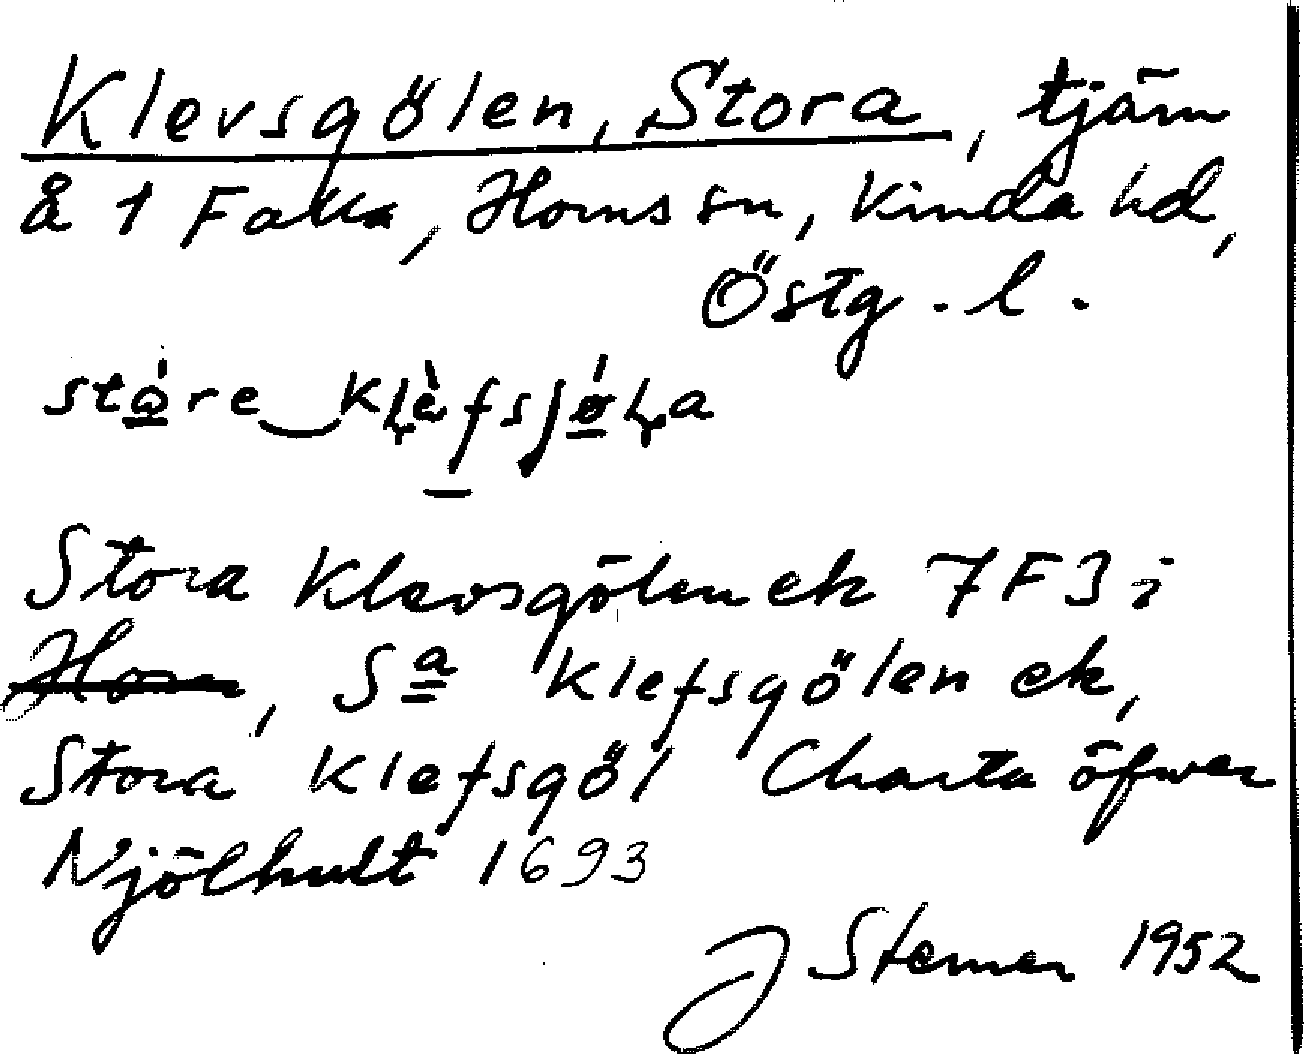 Klevsgölen, Stora, tjärn
å 1 Falla, Horns sn, Kinda hd,
Östg. l.
Stora Klevsgölen ek 7F3 i
Horn, Sa Klefsgölen ek,
Stora Klefsgöl Charta öfwer
Njölhult 1693
J Sterner 1952